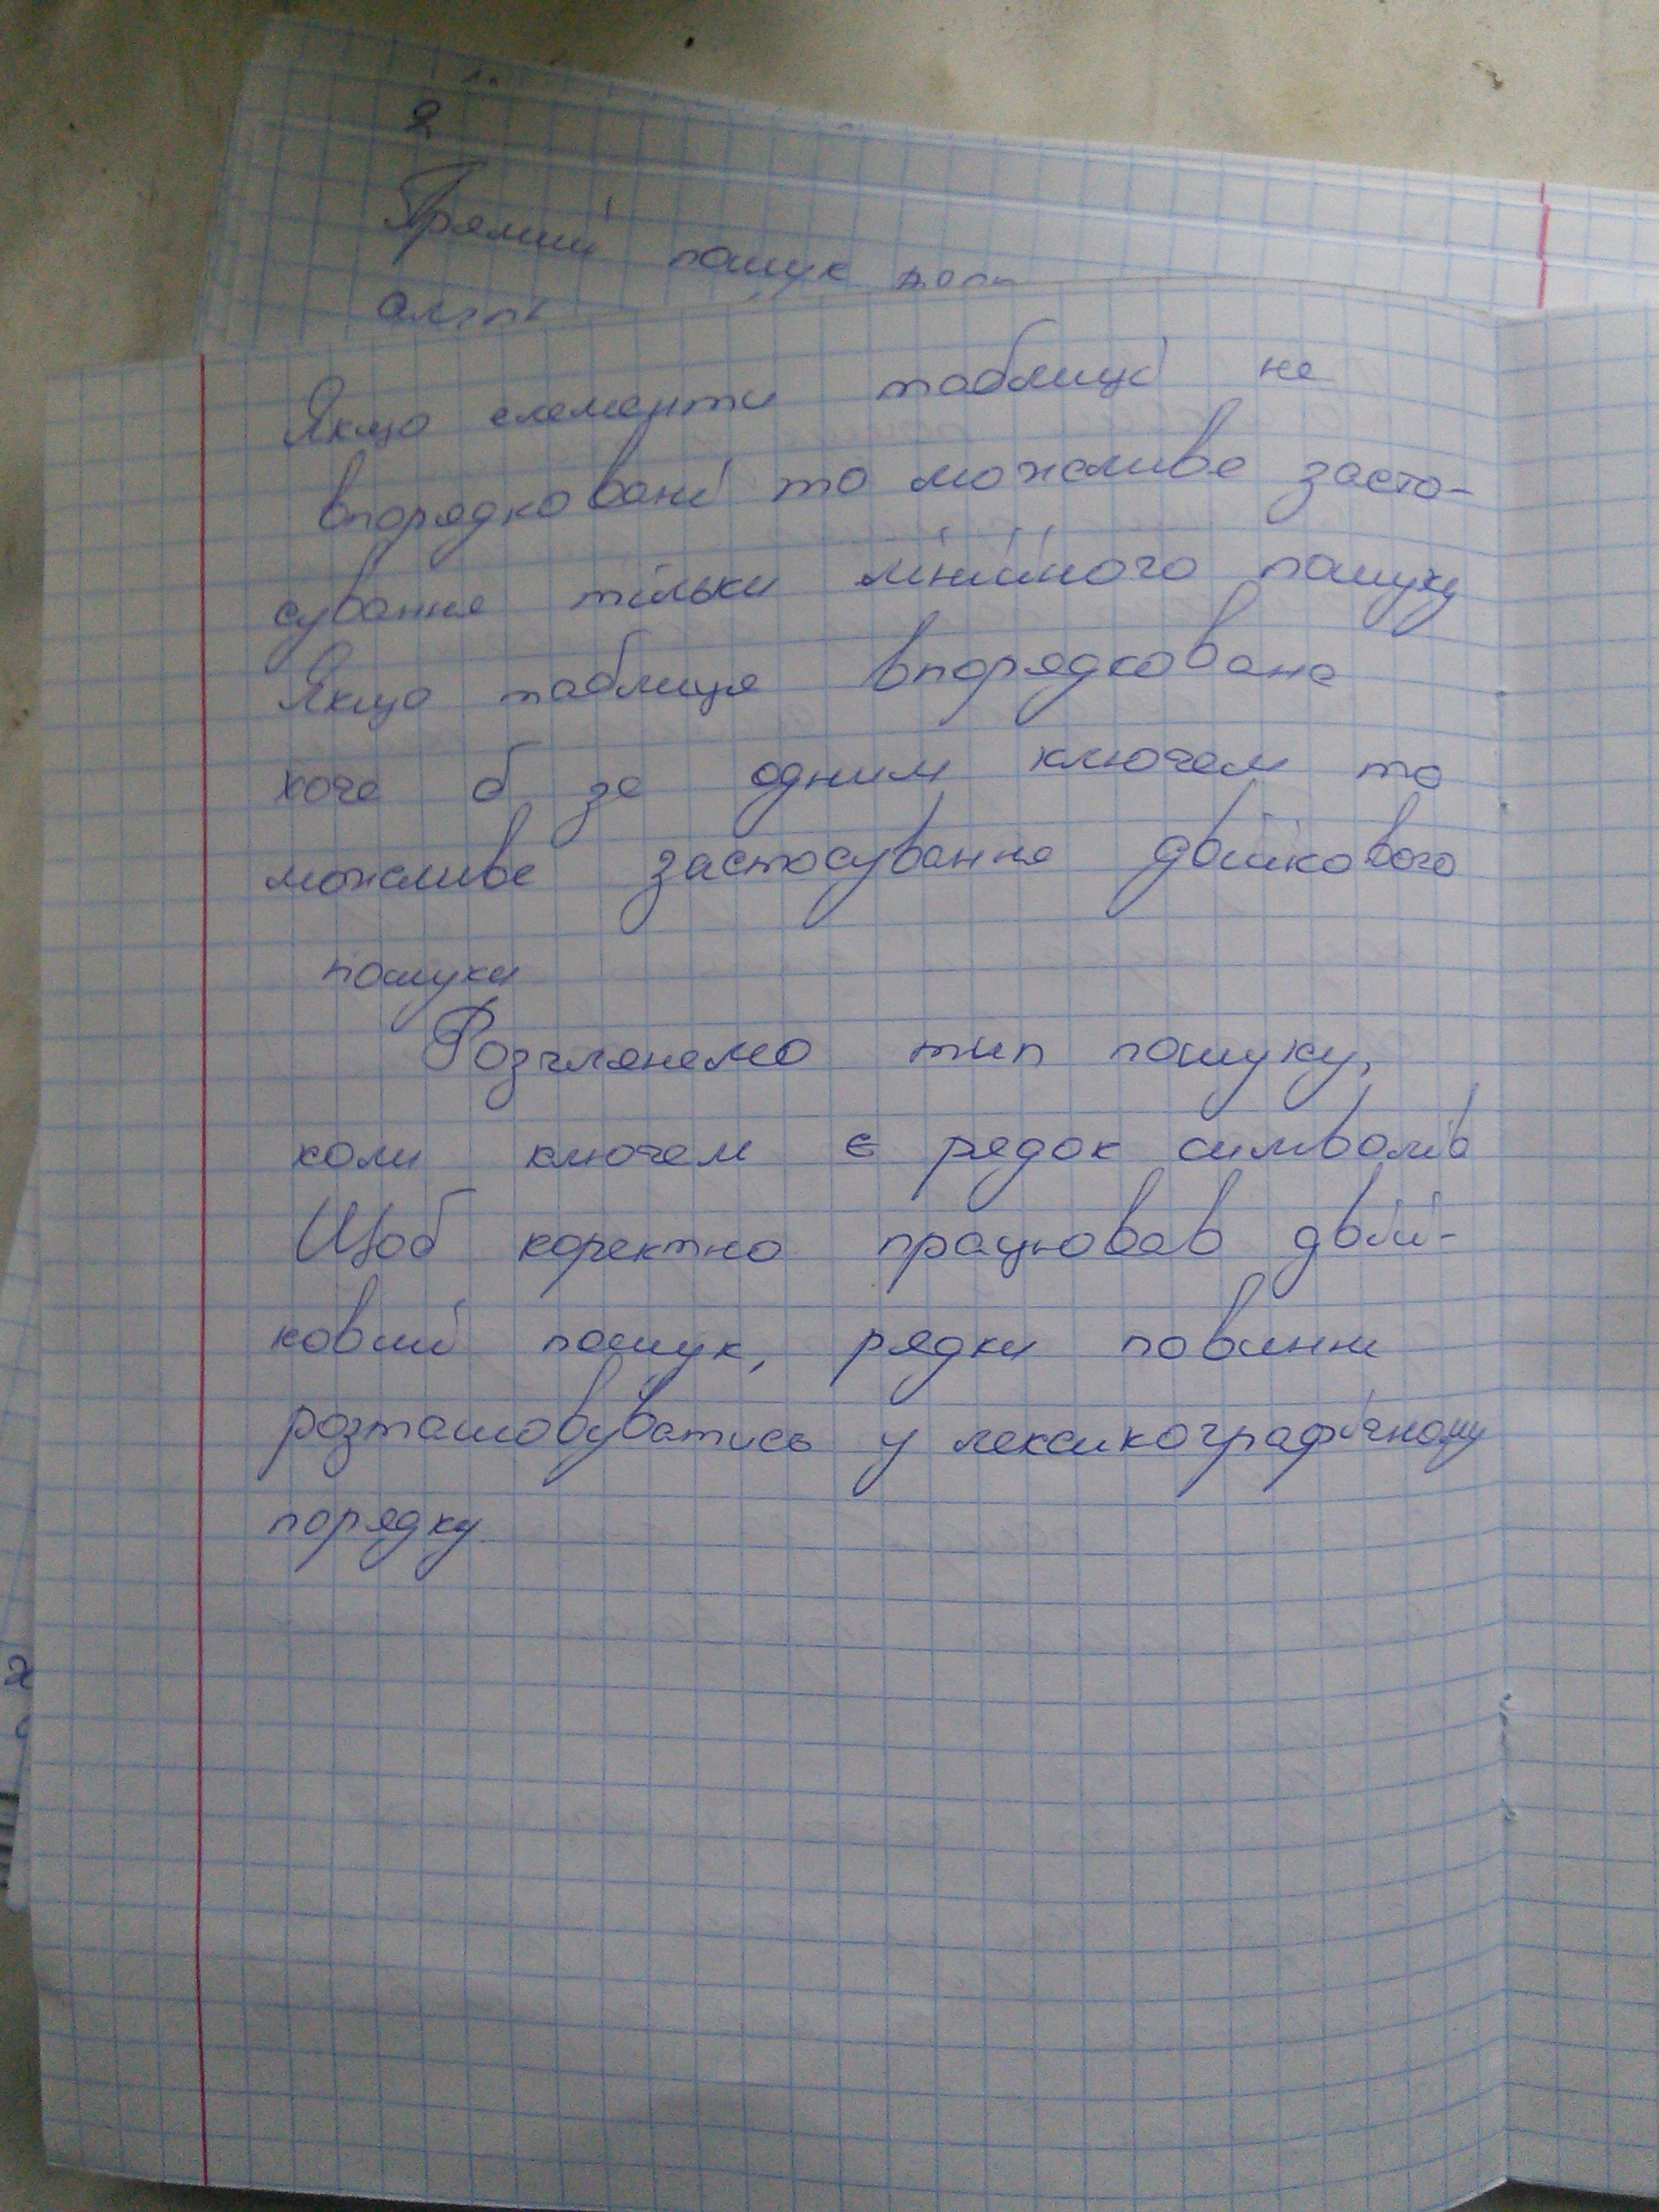 2
Прямий пошук
Якщо елементи таблиці не
впорядковані то можливе засто-
сування тільки лінійного пошуку
Якщо таблиця впорядкована
хоча б за одним ключем то
можливе застосування двійкового
пошуку
Розглянемо тип пошуку,
коли ключем є рядок символів
Щоб коректно працював двій-
ковий пошук, рядки повинні
розташовуватись у лексикографічному
порядку